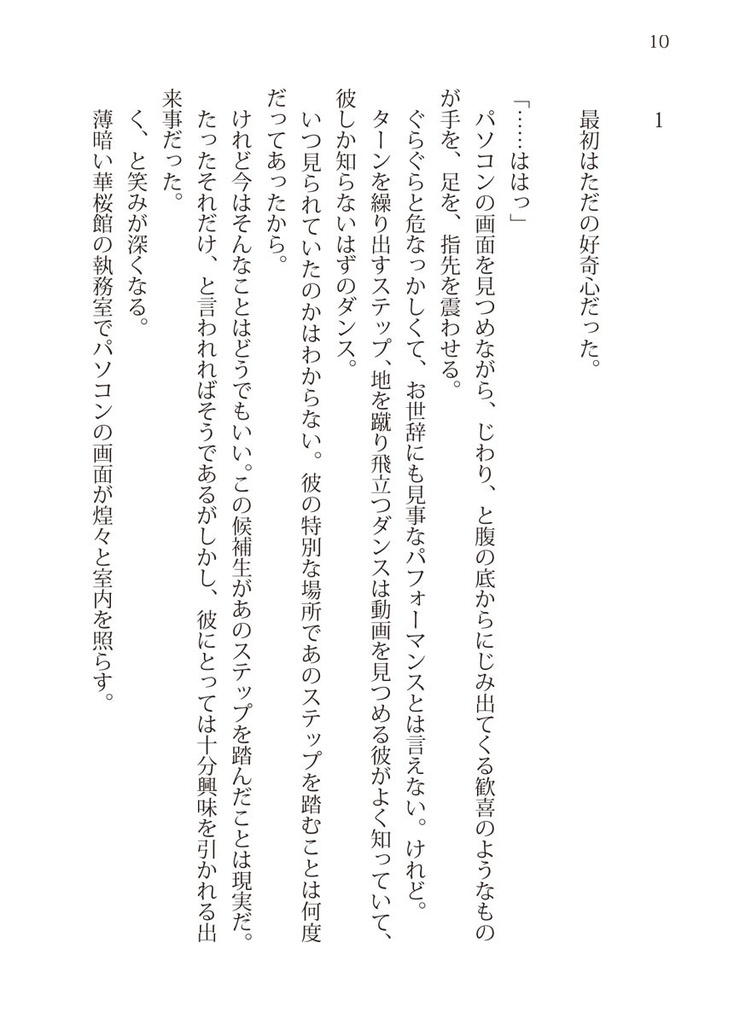 10
1
最初はただの好奇心だった。
「……ははっ」
パソコンの画面を見つめながら、じわり、と腹の底からにじみ出てくる歓喜のようなもの
が手を、足を、指先を震わせる。
ぐらぐらと危なっかしくて、お世辞にも見事なパフォーマンスとは言えない。けれど。
ターンを繰り出すステップ、地を蹴り飛立つダンスは動画を見つめる彼がよく知っていて、
彼しか知らないはずのダンス。
いつ見られていたのかはわからない。彼の特別な場所であのステップを踏むことは何度
だってあったから。
けれど今はそんなことはどうでもいい。この候補生があのステップを踏んだことは現実だ。
たったそれだけ、と言われればそうであるがしかし、彼にとっては十分興味を引かれる出
来事だった。
く、と笑みが深くなる。
薄暗い華桜館の執務室でパソコンの画面が煌々と室内を照らす。